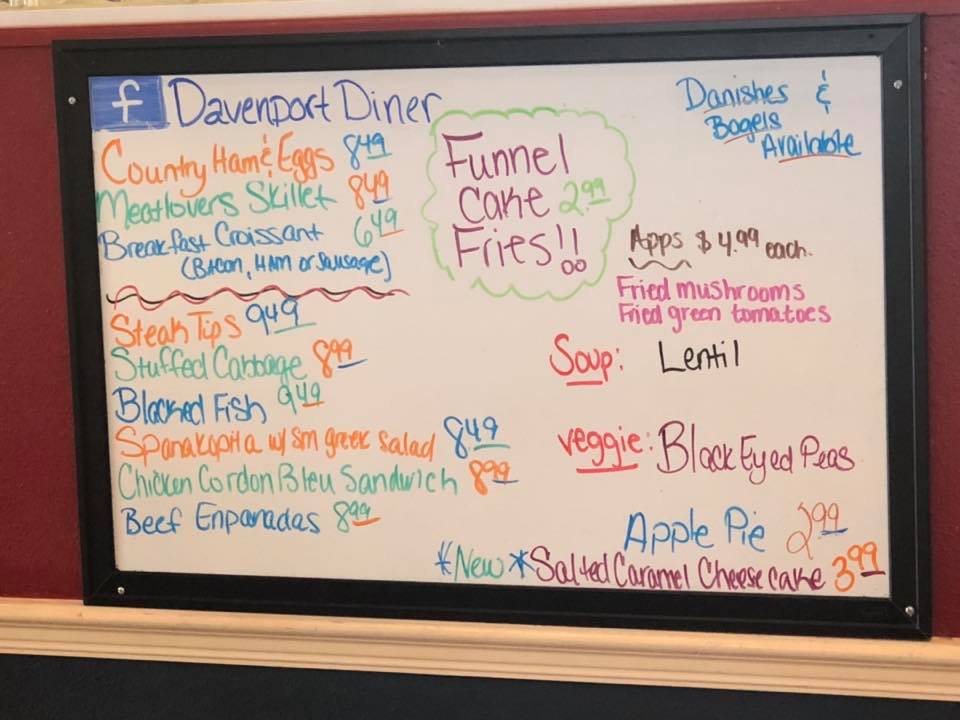 f Davenport Diner
Country Ham & Eggs 8.49
Meatlovers Skillet 8.49
Breakfast Croissant 6.49
(Bacon, Ham or Sausage)
Steak Tips 9.49
Stuffed Cabbage 8.99
Blacked Fish 9.49
Spanakapita w/ sm greek salad 8.49
Chicken Cordon Bleu Sandwich 8.99
Beef Enpanadas 8.99
Funnel
Cake 2.99
Fries!!
Danishes &
Bagels
Available
Apps $4.99 each.
Fried mushrooms
Fried green tomatoes
Soup: Lentil
veggie: Black Eyed Peas
Apple Pie 2.99
*New* Salted Caramel Cheesecake 3.99